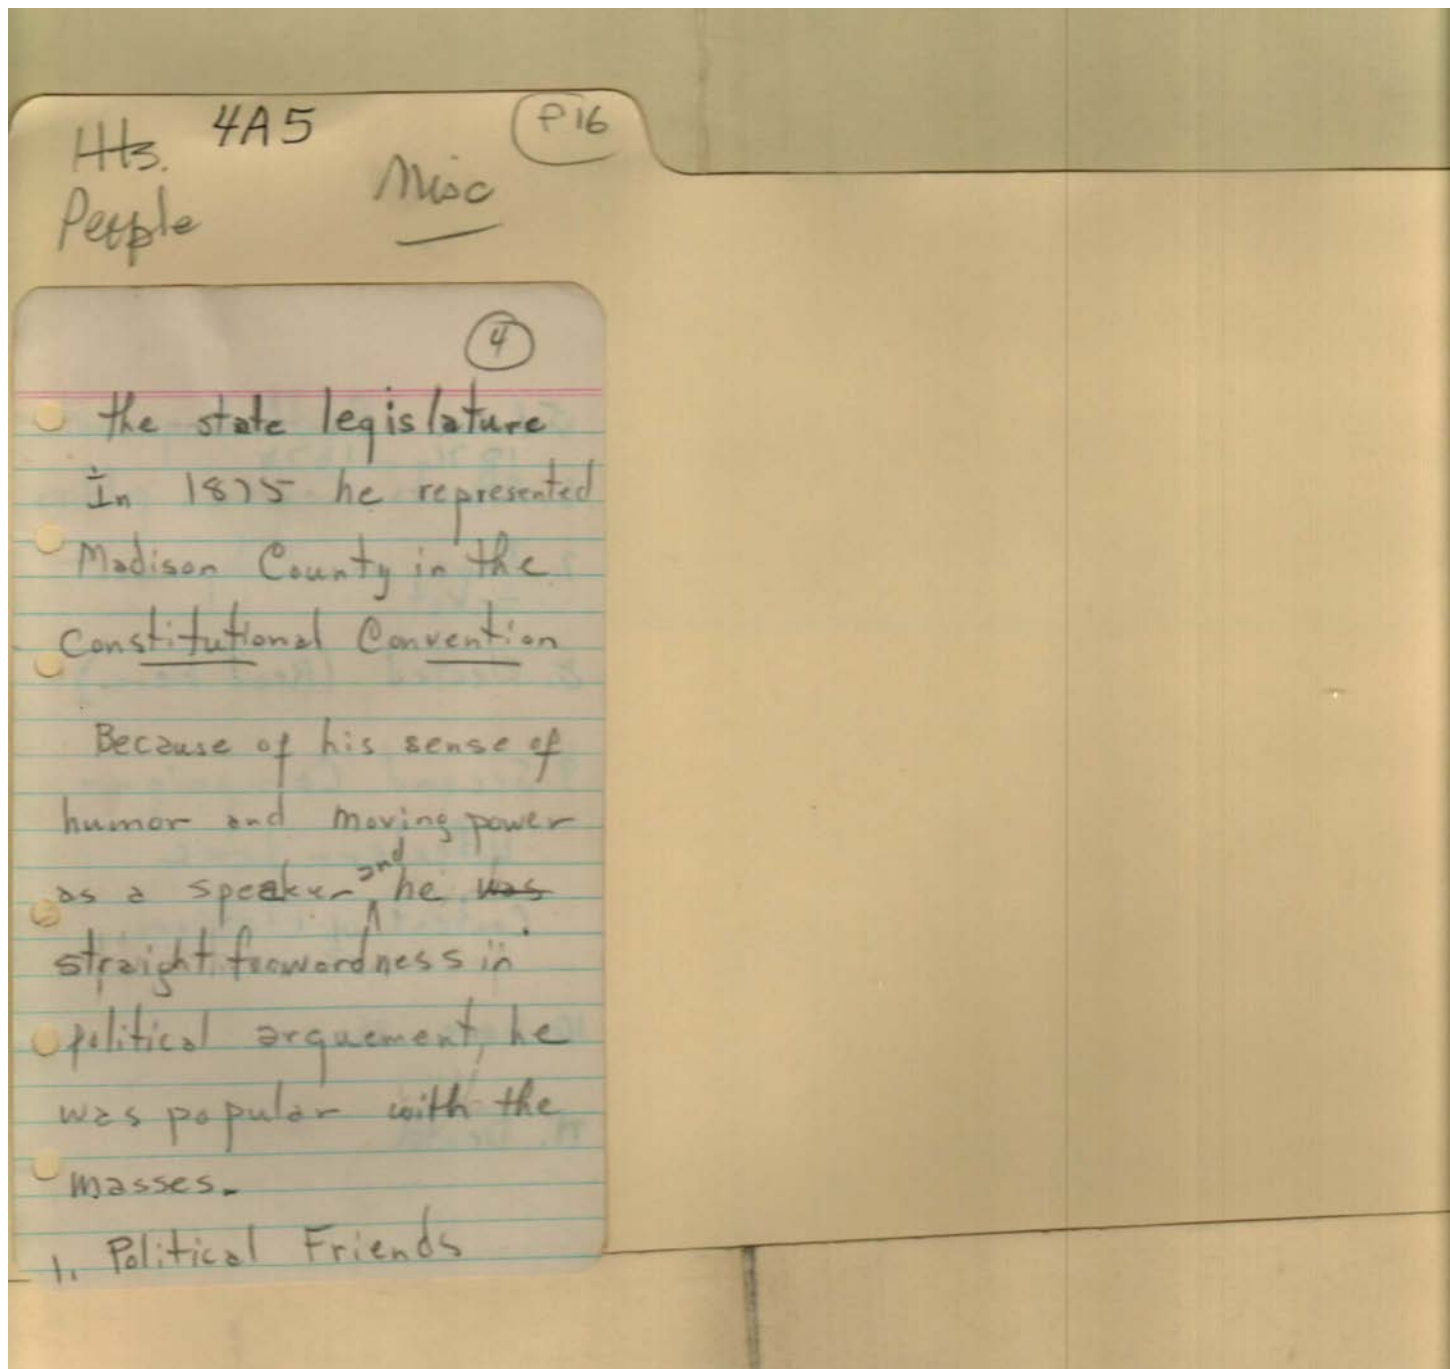 4A5
P16
Hts.
People
Misc
4
the state legislature
In 1875 he represented
Madison County in the
Constitutional Convention
Because of his sense of
humor and moving power
as a speaker and he was
straight forwardness in
political arguement, he
was popular with the
masses.
1. Political Friends